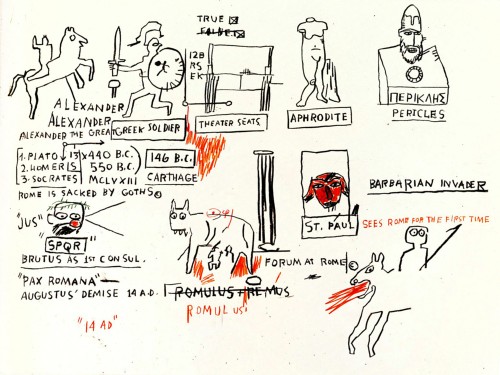 TRUE
FALSE
128
RS
EK
ALEXANDER
ALEXANDER
ALEXANDER THE GREAT
GREEK SOLDIER
THEATER SEATS
APHRODITE
ΠΕΡΙΚΛΗΣ
PERICLES
1. PLATO
440 B.C.
2. HOMER IS 550 B.C.
3. SOCRATES MCLVXIII
146 B.C.
CARTHAGE
ROME IS SACKED BY GOTHS©
"JUS"
SPQR"
BRUTUS AS 1ST CONSUL.
"PAX ROMANA"
AUGUSTUS' DEMISE 14 A.D.
"14 AD"
ROMULUS + REMUS
ROMULUS
FORUM AT ROME ©
ST. PAUL
BARBARIAN INVADER
SEES ROME FOR THE FIRST TIME